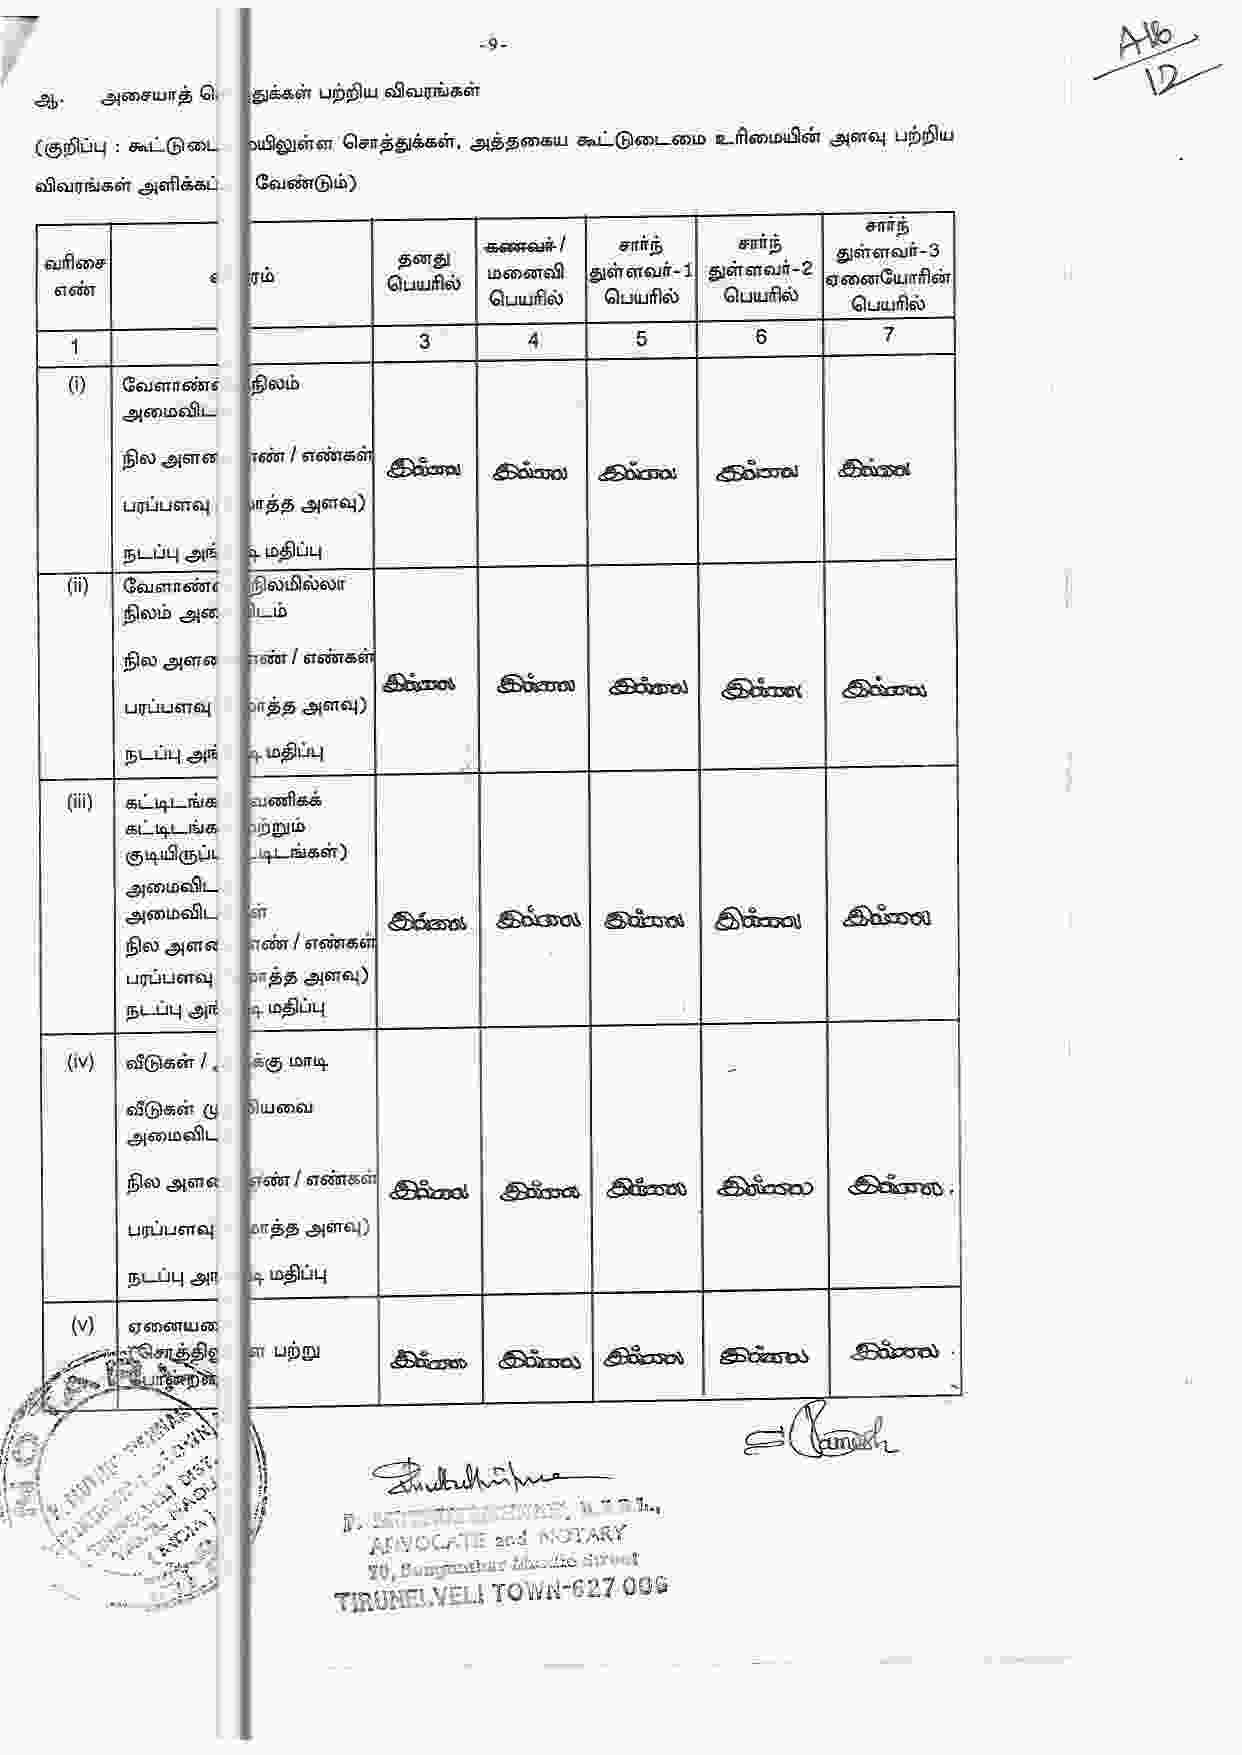 -9-
A16
12
ஆ. அசையாத் துக்கள் பற்றிய விவரங்கள்
(குறிப்பு : கூட்டுடை யிலுள்ள சொத்துக்கள், அத்தகைய கூட்டுடைமை உரிமையின் அளவு பற்றிய
விவரங்கள் அளிக்கப் வேண்டும்)
வரிசை எண்
ரம்
தனது பெயரில்
கணவர் / மனைவி பெயரில்
சார்ந் துள்ளவர்-1 பெயரில்
சார்ந் துள்ளவர்-2 பெயரில்
சார்ந் துள்ளவர்-3 ஏனையோரின் பெயரில்
1 3 4 5 6 7
(i) வேளாண் நிலம்
அமைவிட
நில அள எண் / எண்கள்
பரப்பளவு மாத்த அளவு)
நடப்பு அங் டி மதிப்பு
இல்லை இல்லை இல்லை இல்லை இல்லை
(ii) வேளாண் நிலமில்லா
நிலம் அமை விடம்
நில அள எண் / எண்கள்
பரப்பளவு மாத்த அளவு)
நடப்பு அங் டி மதிப்பு
இல்லை இல்லை இல்லை இல்லை இல்லை
(iii) கட்டிடங்க வணிகக்
கட்டிடங்க மற்றும்
குடியிருப்ப ட்டிடங்கள்)
அமைவிட
அமைவிட ள்
நில அள எண் / எண்கள்
பரப்பளவு மாத்த அளவு)
நடப்பு அங் டி மதிப்பு
இல்லை இல்லை இல்லை இல்லை இல்லை
(iv) வீடுகள் / அ க்கு மாடி
வீடுகள் மு லியவை
அமைவிட
நில அள எண் / எண்கள்
பரப்பளவு மாத்த அளவு)
நடப்பு அங் டி மதிப்பு
இல்லை இல்லை இல்லை இல்லை இல்லை.
(v) ஏனைய
(சொத்தி ள பற்று
போன்ற
இல்லை இல்லை இல்லை இல்லை இல்லை.
Ramesh
NOTARY
ADVOCATE and NOTARY
TIRUNELVELI TOWN-627 006